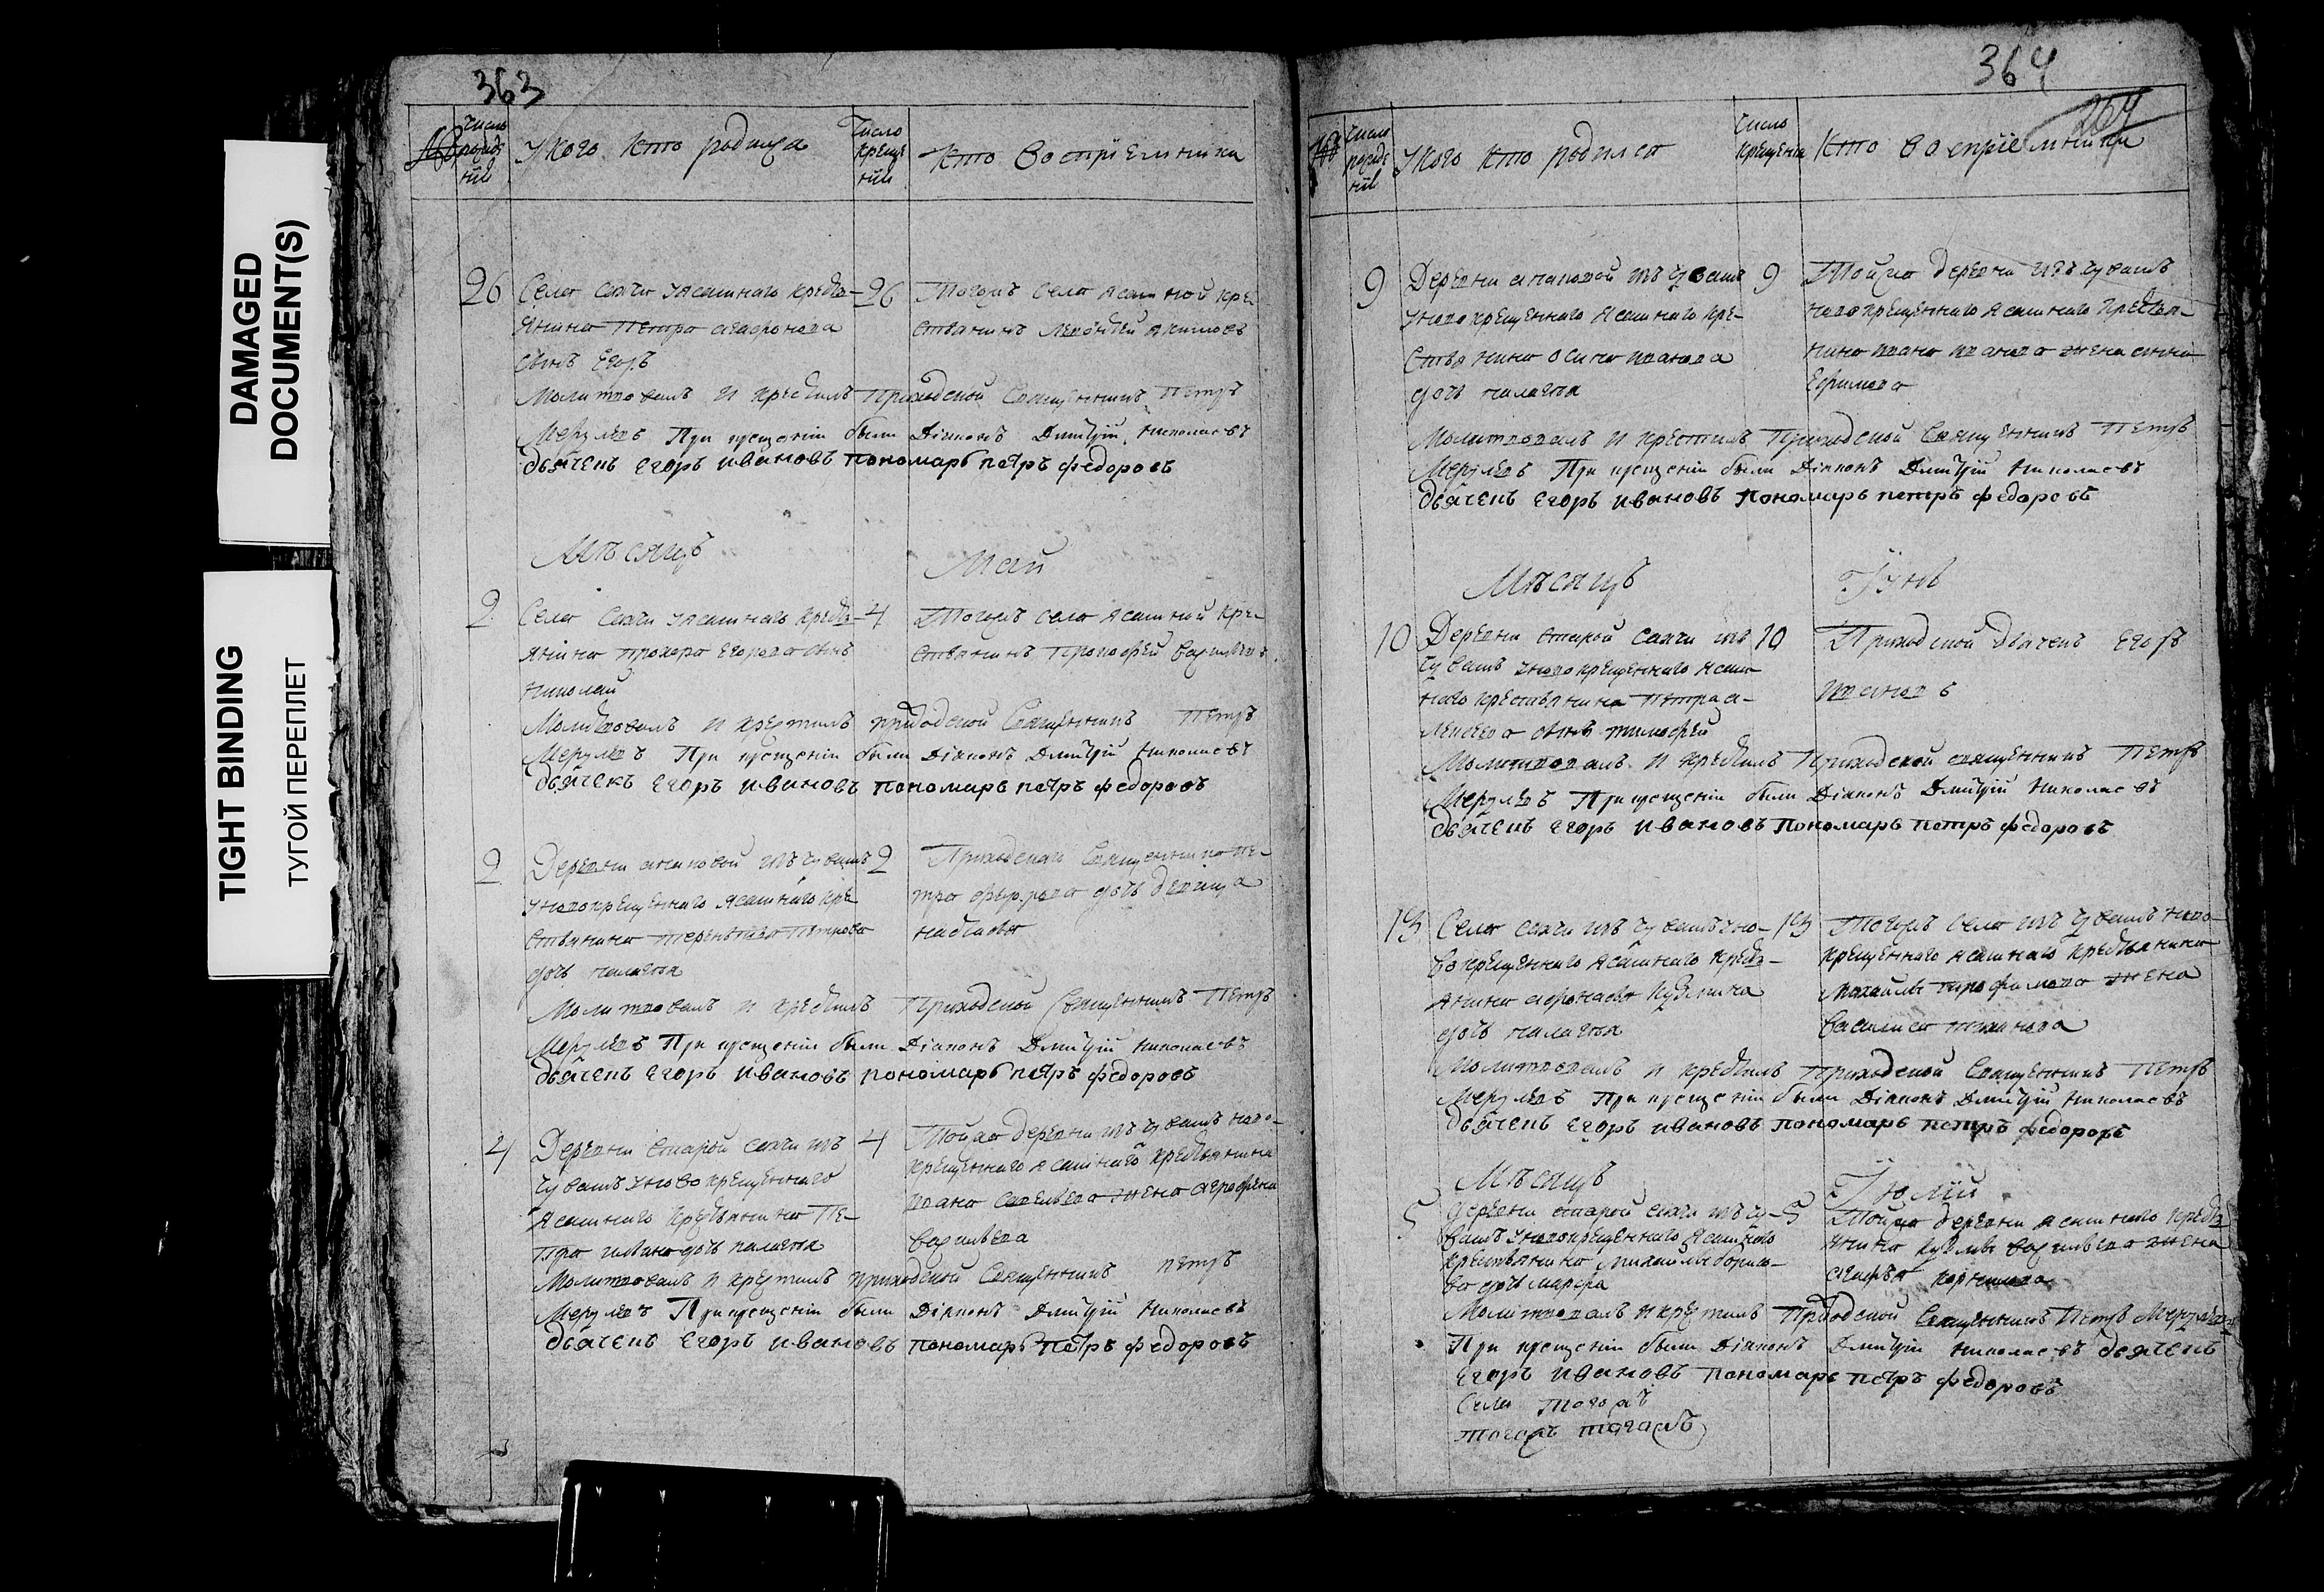 DAMAGED
DOCUMENT(S)
TIGHT BINDING
ТУГОЙ ПЕРЕПЛЕТ
363
№
Число рожде нія
У кого кто родился
Число креще нія
кто воспріемники
26
Села сакчи у ясашнаго кресть-
янина Петра агафонова
сынъ Егоръ
26
Тогожъ села ясашной кре-
стьянинъ акимовъ
Молитвовалъ и крестилъ Приходской Священникъ Петръ
При крещеніи были Діаконъ Дмитрій Николаевъ
дьячекъ Егоръ ивановъ пономарь петръ федоровъ
Мѣсяцъ Май
2
Села Сакчи у ясашнаго кресть-
янина прохора Егорова сынъ
николай
4
Тогожъ села ясашной кре-
стьянинъ васильевъ
Молитвовалъ и крестилъ приходской Священникъ Петръ
При крещеніи были Діаконъ Дмитрій Николаевъ
дьячекъ Егоръ ивановъ пономарь петръ федоровъ
2
Деревни изъ чувашъ
у новокрещеннаго ясашнаго кре-
стьянина
дочь палагея
2
Приходскаго Священника пе-
тра дочь девица
Молитвовалъ и крестилъ Приходской Священникъ Петръ
При крещеніи были Діаконъ Дмитрій Николаевъ
дьячекъ Егоръ ивановъ пономарь петръ федоровъ
4
Деревни старой сакчи изъ
чувашъ у новокрещеннаго
ясашнаго крестьянина Пе-
тра дочь палагея
4
Тойже деревни изъ чувашъ ново-
крещеннаго ясашнаго крестьянина
ивана савельева жена аграфена
васильева
Молитвовалъ и крестилъ приходской Священникъ петръ
При крещеніи были Діаконъ Дмитрій Николаевъ
дьячекъ Егоръ ивановъ пономарь петръ федоровъ
364
264
№
Число рожде нія
У кого кто родился
Число крещенія
Кто воспріемники
9
Деревни изъ чувашъ
у новокрещеннаго ясашнаго кре-
стьянина осипа иванова
дочь палагея
9
Тойже деревни изъ чувашъ
новокрещеннаго ясашнаго крестья-
нина ивана иванова жена
Ефимова
Молитвовалъ и крестилъ Приходской Священникъ Петръ
При крещеніи были Діаконъ Дмитрій Николаевъ
дьячекъ Егоръ ивановъ пономарь петръ федоровъ
Мѣсяцъ Іунь
10
Деревни старой сакчи изъ
чувашъ у новокрещеннаго ясаш-
наго крестьянина Петра а-
сынъ тимофей
10
Приходской дьячекъ Егоръ
ивановъ
Молитвовалъ и крестилъ Приходской священникъ Петръ
При крещеніи были Діаконъ Дмитрій Николаевъ
дьячекъ Егоръ ивановъ пономарь петръ федоровъ
13
Села сакчи изъ чувашъ у но-
вокрещеннаго ясашнаго кресть-
янина афонасья кузмина
дочь палагея
13
Тогожъ села изъ чувашъ ново-
крещеннаго ясашнаго крестьянина
михайлы трофимова жена
василиса
Молитвовалъ и крестилъ приходской Священникъ Петръ
При крещеніи были Діаконъ Дмитрій Николаевъ
дьячекъ Егоръ ивановъ пономарь петръ федоровъ
Мѣсяцъ Іюлій
5
деревни старой сакчи изъ чу-
вашъ у новокрещеннаго ясашнаго
крестьянина михайлы борисо-
ва дочь марфа
5
Тойже деревни ясашнаго кресть-
янина кузмы васильева жена
Молитвовалъ и крестилъ Приходской Священникъ Петръ
При крещеніи были Діаконъ Дмитрій Николаевъ дьячекъ
Егоръ ивановъ пономарь петръ федоровъ
Села тогожъ
тогожъ тогожъ